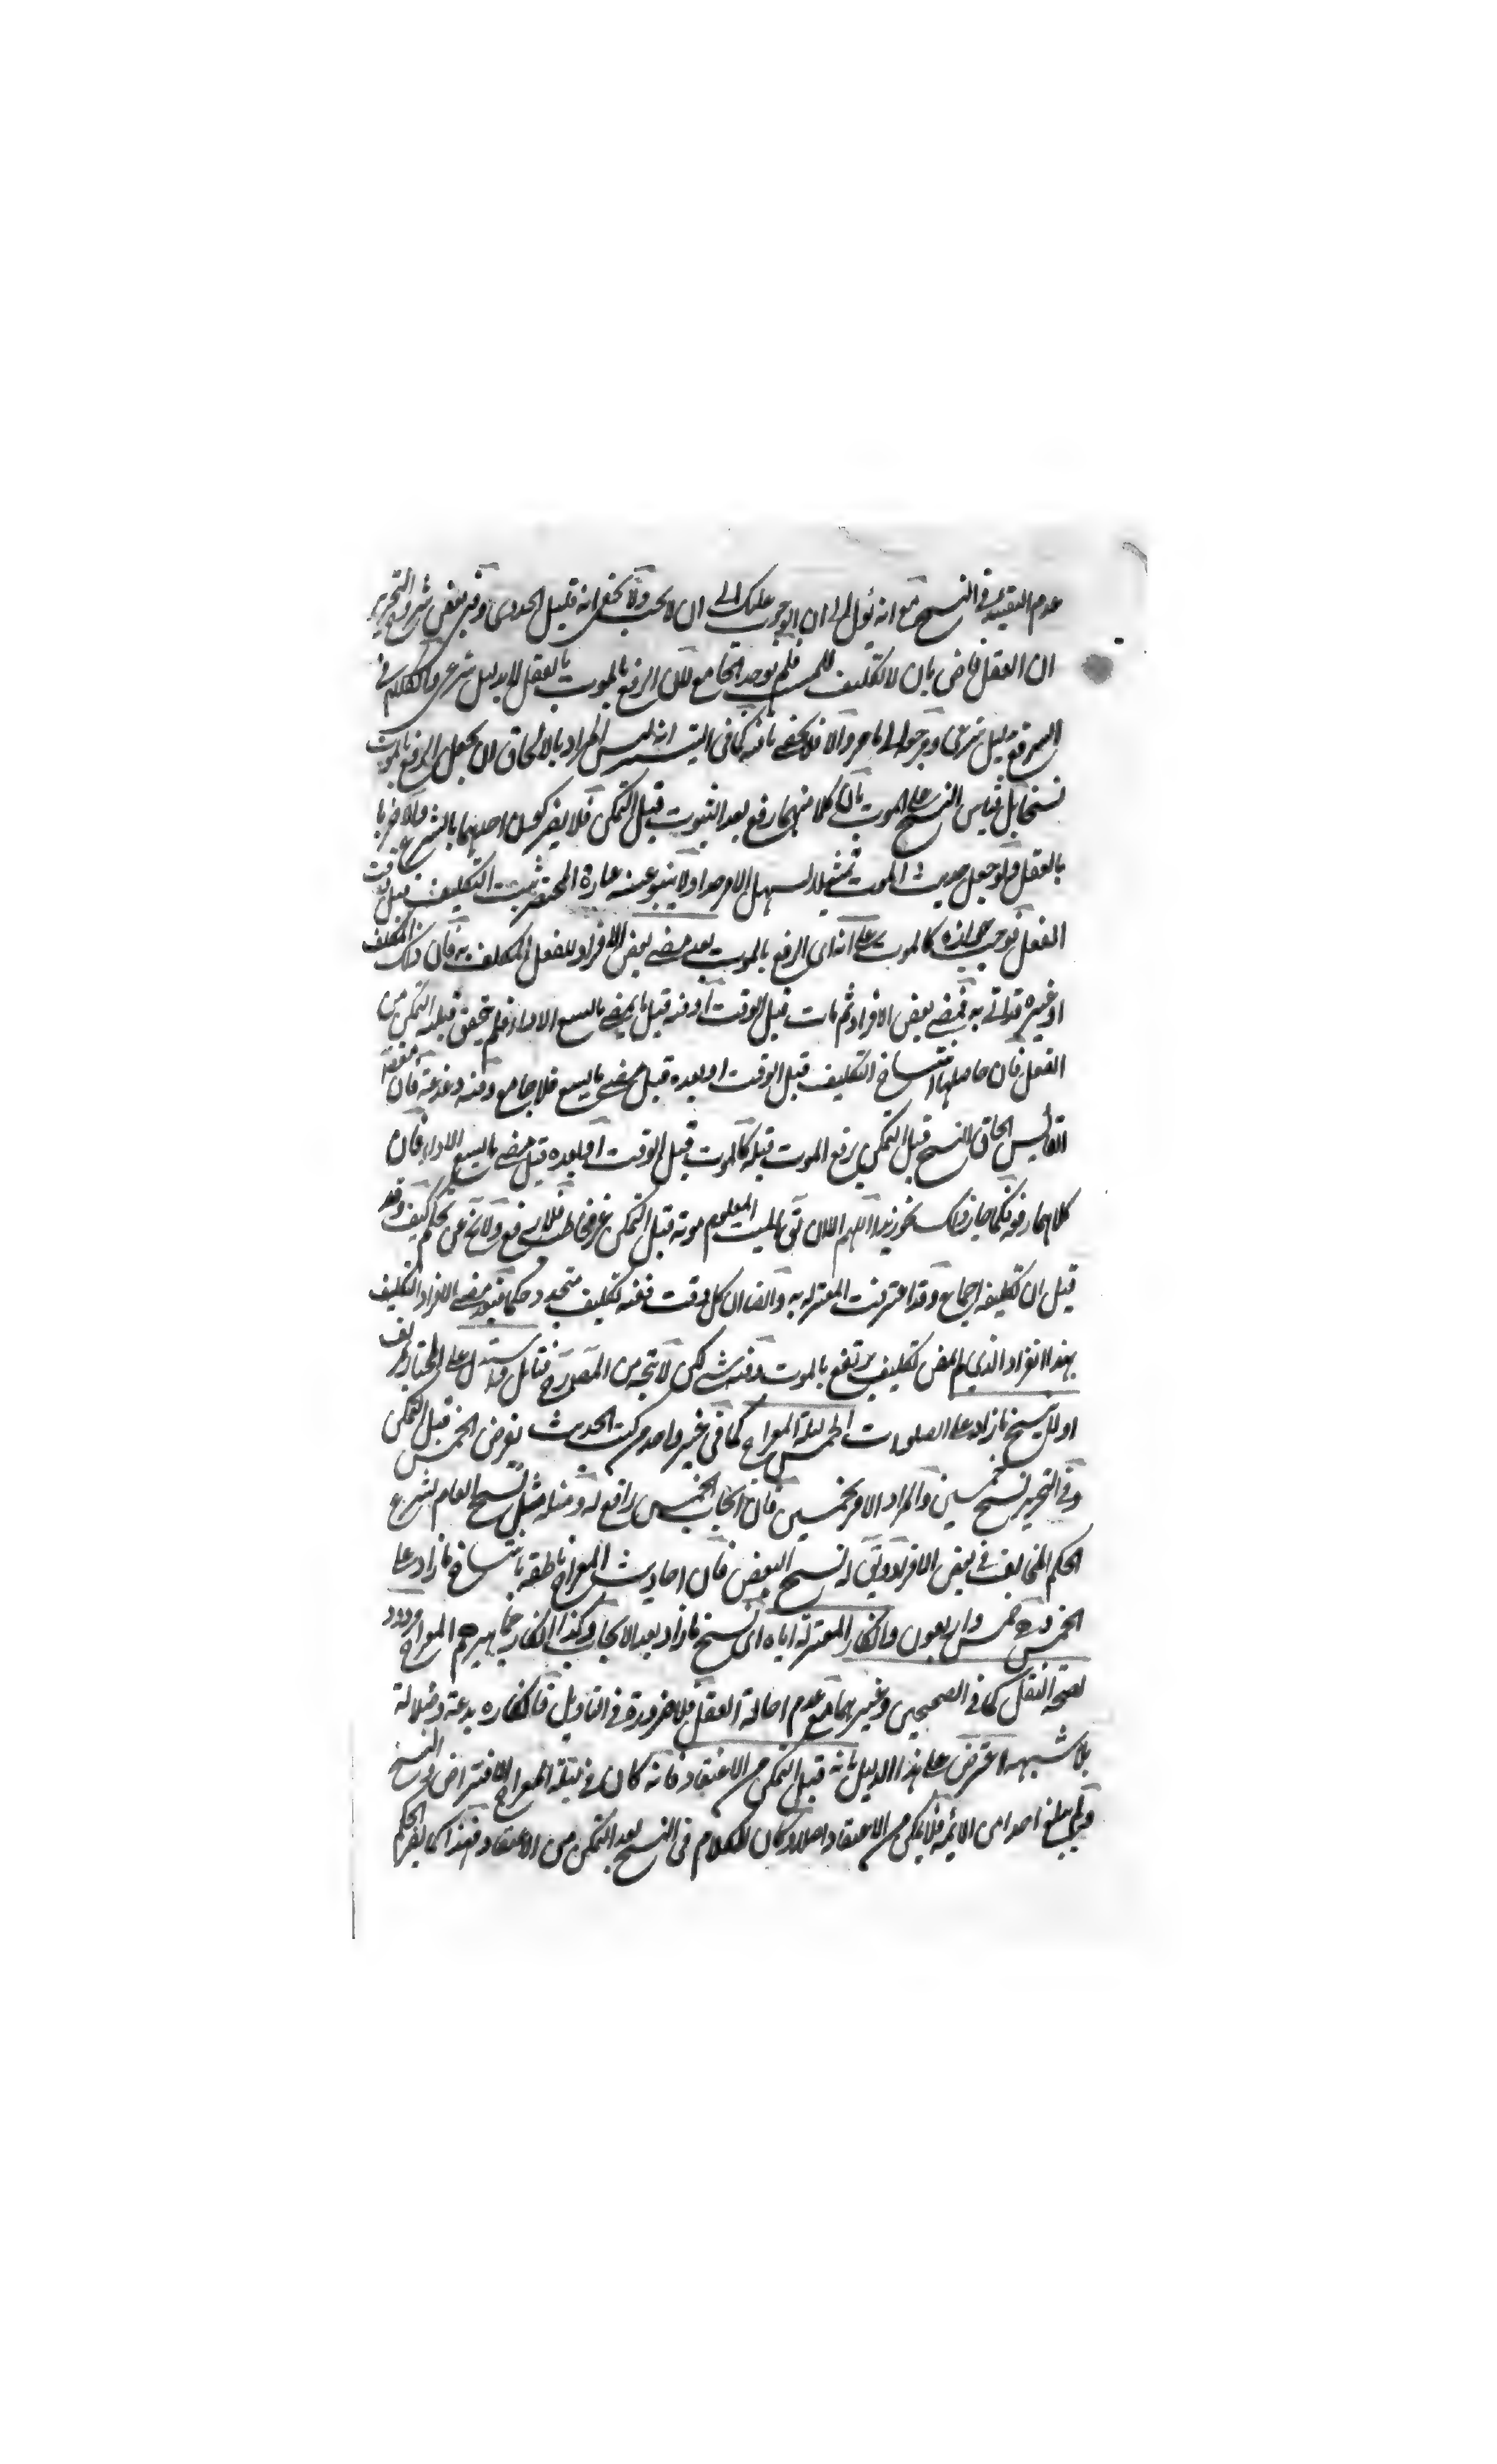 عدم التقييد في النسخ مع انه يؤل الى ان الوجوب عليك الى ان لا يجب ولا يخفى انه قليل الجدوى وفى بعض شروح التحرير
ان العقل قاض بان لا تكليف للميت فلم يوجد الجامع لان الرفع بالموت بالعقل لا بدليل شرعي والكلام في
الرفع بدليل شرعى ومرجوا الى ما مر والا فلا يخفى ما فيه كما فى التيسير انه ليس المراد بالالحاق لان يجعل الرفع بالموت
نسخا بل قياس النسخ على الموت بان كلا منهما رفع بعد الثبوت قبل التمكن فلا يضر كون احدهما بالشرع والاخر با
بالعقل ولو جعل حديث الموت تمثيلا لسهل الامر جدا ولا ينبو عنه عبارة المختصر ثبت التكليف قبل وقت
الفعل فوجب جوازه كالموت على انه اى الرفع بالموت بعد مضى بعض الافراد للفعل المكلف به فان ذلك المكلف
او غيره قد اتى به فمضى بعض الافراد ثم مات قبل الوقت او فيه قبل ما يمضى ما يسع الاداء فلم يتحقق قبله التمكن من
الفعل فان حاصلها انتساخ التكليف قبل الوقت او بعده قبل مضى ما يسع فلا جامع وفيه دغدغة فان
القائس الحاق النسخ قبل التمكن برفع الموت قبله كالموت قبل الوقت او بعده قبل مضى ما يسع الاداء فان
كلاهما رفع فكما جاز ذلك يجوز هذا اللهم الا ان يق الميت المعلوم موته قبل التمكن غير مخاطب فلا رفع ولا يخ عن تحكم كيف وقد
قيل ان تكليفه اجماع وقد اعترفت المعتزلة به وايضا ان كل وقت ففيه تكليف متجدد حكما فبعد مضى الافراد التكليف
بهذا الافراد الذي لم يمض تكليف يرتفع بالموت وفيه شے لكن لا يتجه من المصدر فتأمل واستدل على المختار
اولا بنسخ ما زاد على الصلوات الخمس ليلة المعراج كما فى غير واحد من كتب الحديث بفرض الخمس قبل التمكن
وفى التحرير نسخ خمسين والمراد الامر بخمسين فان ايجاب الخمس رافع له ومثله مثل نسخ العام بشرع
الحكم المخالف في بعض الافراد ويق له نسخ البعض فان احاديث المعراج ناطقة بانتساخ ما زاد على
الخمس وهو خمس واربعون وانكار المعتزلة اياه اى نسخ ما زاد بعد الايجاب وكذا انكار جماهيرهم المعراج مردود
بصحة النقل كما فى الصحيحين وغيرهما مع عدم احالة العقل فلا ضرورة في التاويل فانكاره بدعة وضلالة
بلا شبهة اعترض على هذا الدليل بانه قبل التمكن من الاعتقاد فانه كان فى ليلة المعراج الافتراض والنسخ
ولم يبلغ احدا من الائمة فلا يمكن من الاعتقاد اصلا وكان الكلام فى النسخ بعد التمكن من الاعتقاد فهذا كما يضر الحكم